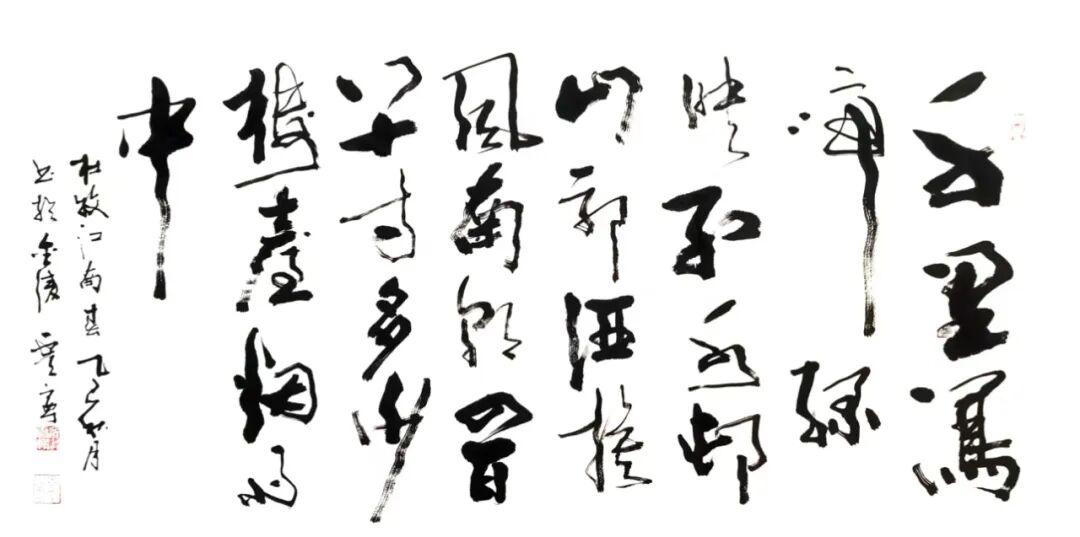 千里鶯
啼綠
映紅水邨
山郭酒旗
風南朝四百
八十寺多少
樓臺烟雨
中
杜牧江南春乙巳秋月
书於金陵